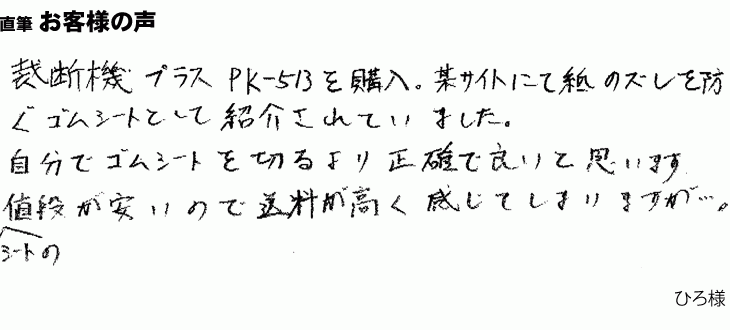 直筆 お客様の声
裁断機 プラス PK-513を購入。某サイトにて紙のズレを防
ぐゴムシートとして紹介されていました。
自分でゴムシートを切るより正確で良いと思います
値段が安いので送料が高く感じてしまいますが…。
シートの
ひろ様